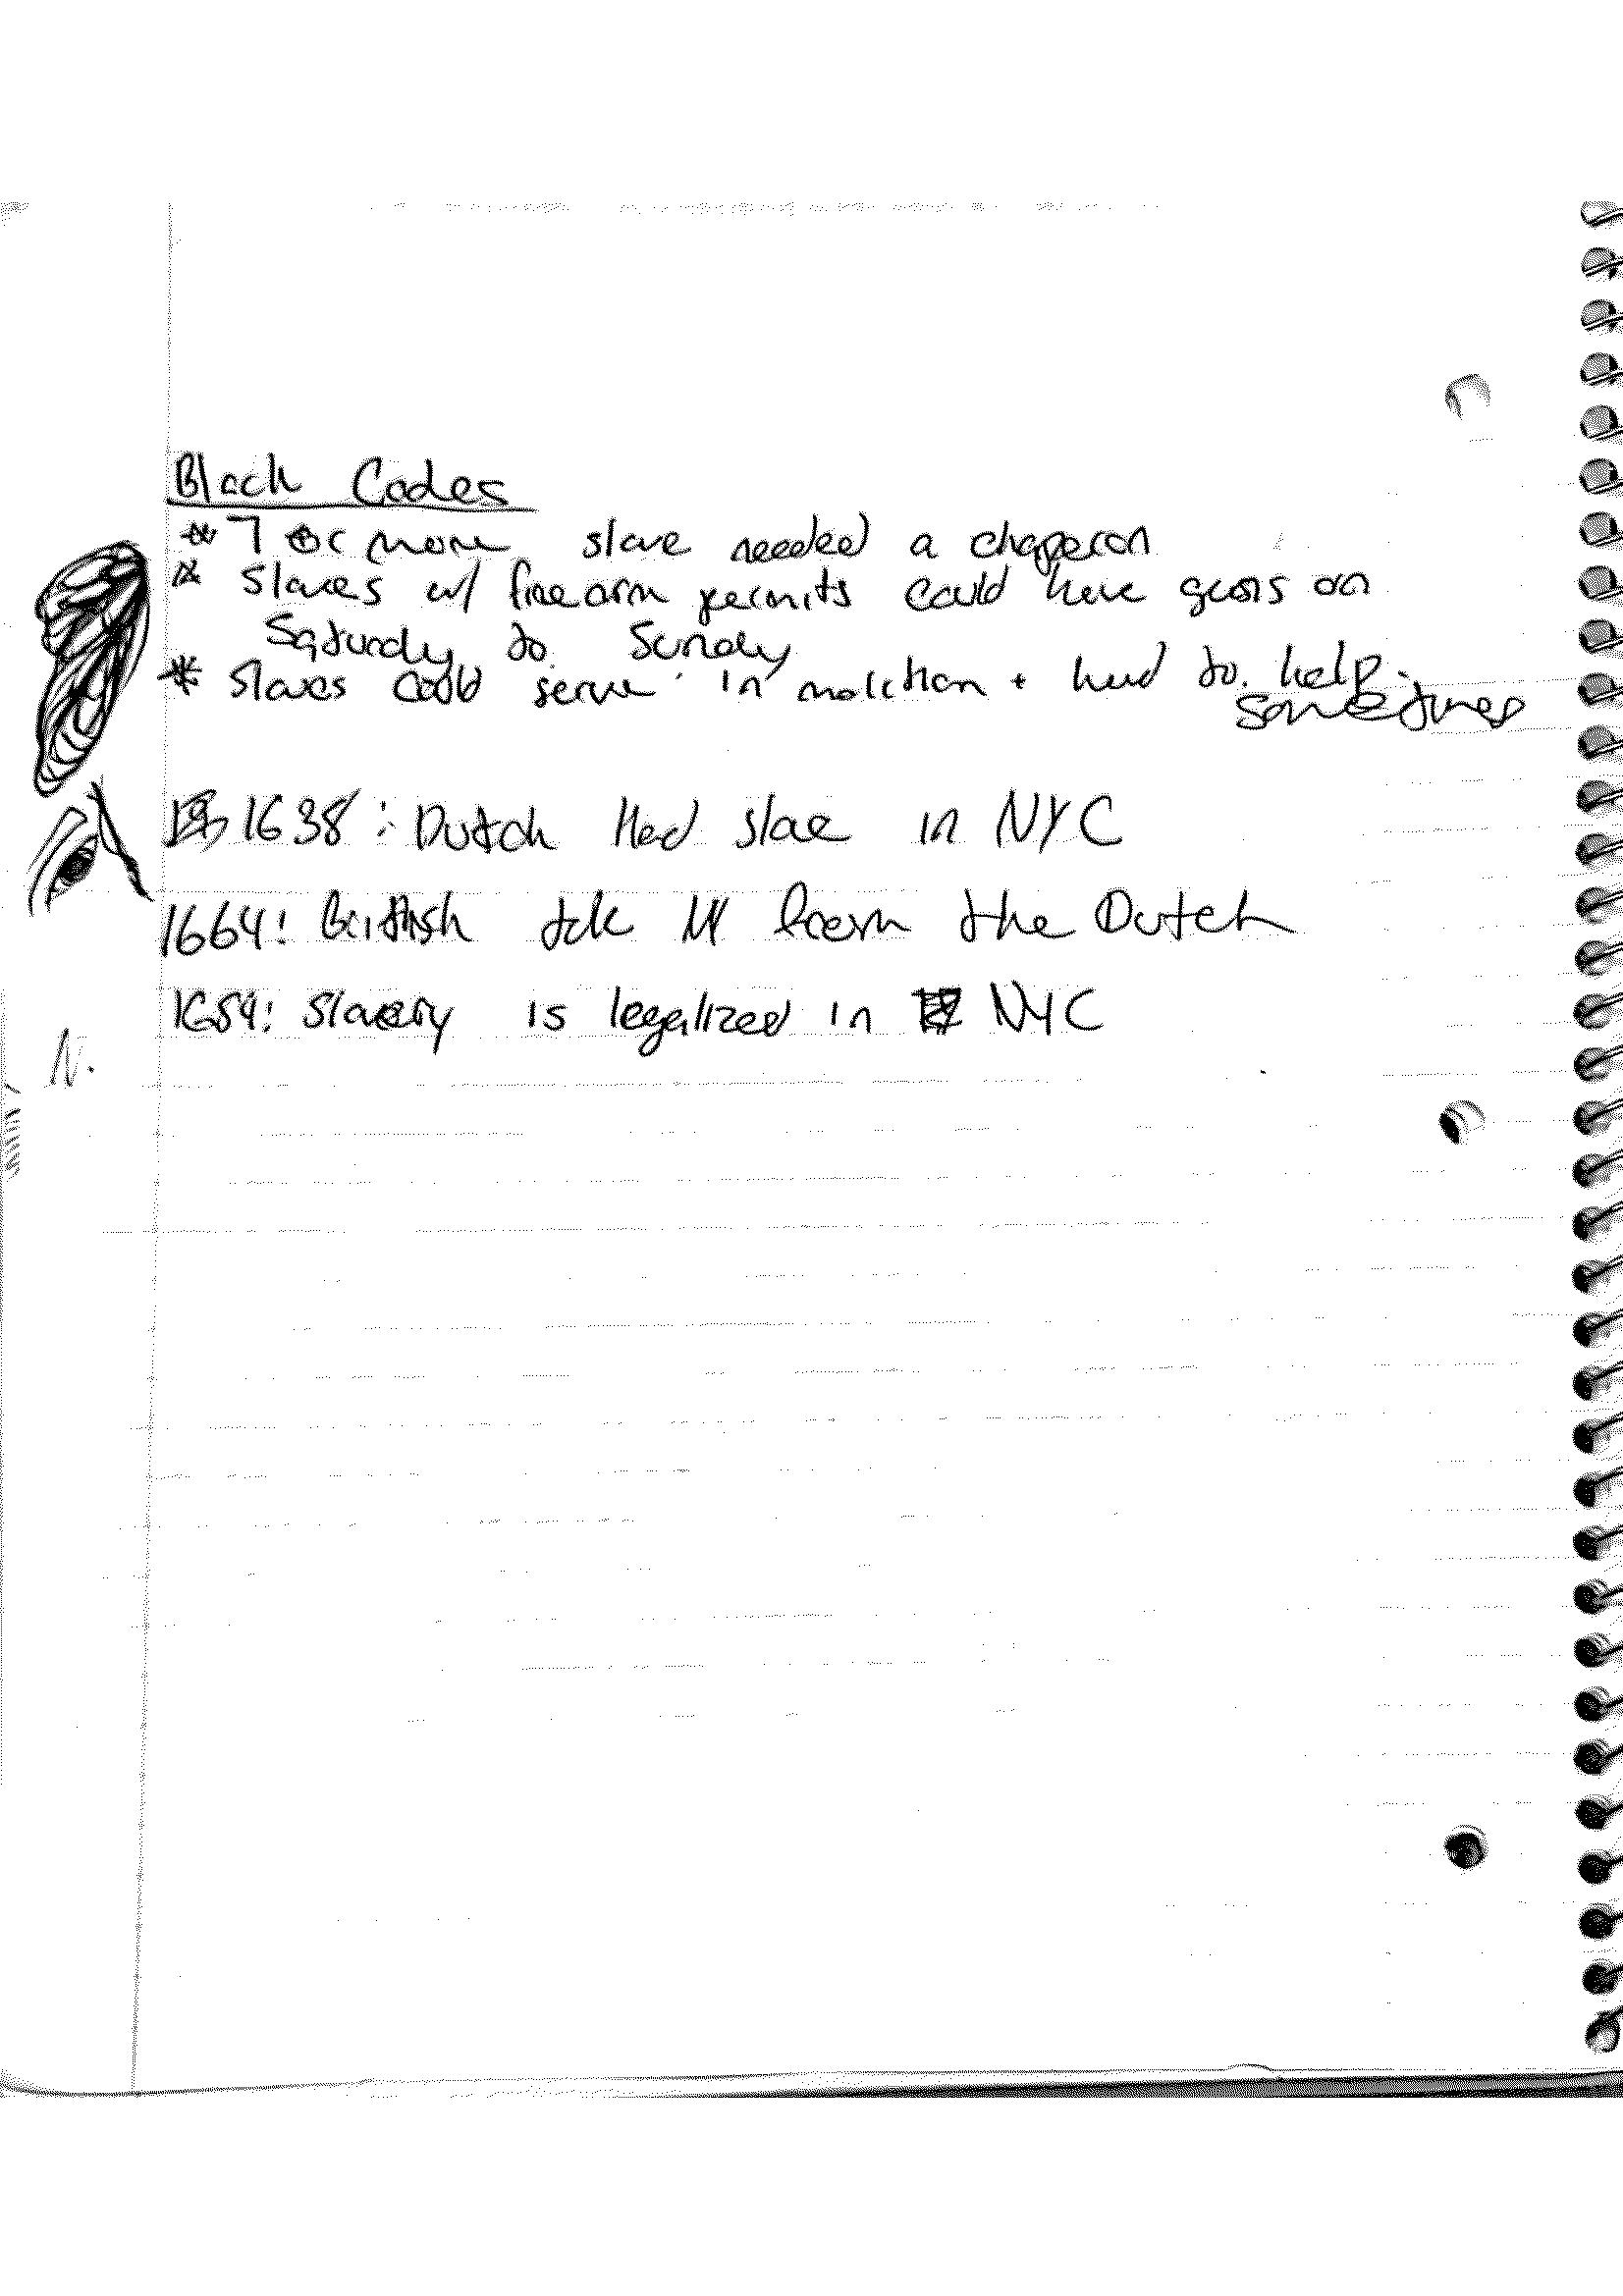 Black Codes
* 7 or more slave needed a chaperon
* Slaves w/ firearm permits could have guns on
Saturdy to Sunday
* Slaves could serve in + had to help
sometimes
1638: Dutch Had slae in NYC
1664: British from the Dutch
Slavery is legalized in NYC
N.